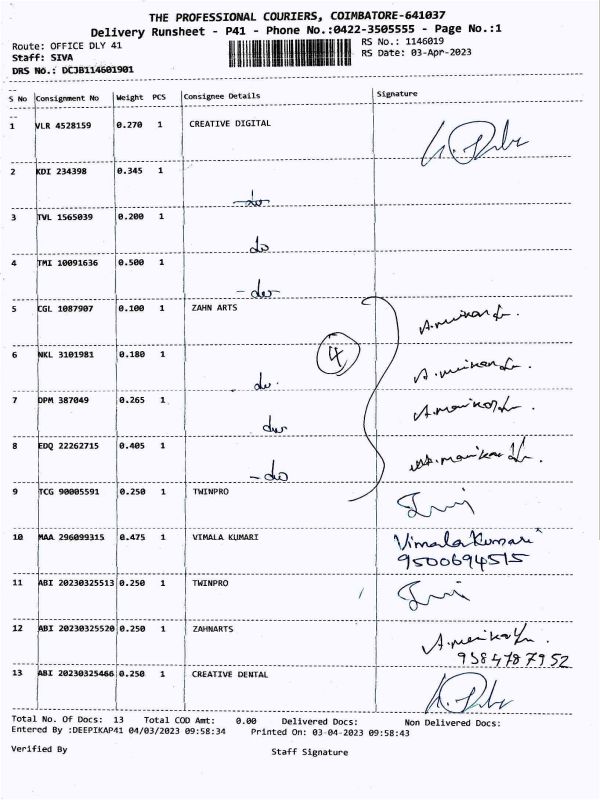 THE PROFESSIONAL COURIERS, COIMBATORE-641037
Delivery Runsheet - P41 - Phone No.:0422-3505555 - Page No.:1
Route: OFFICE DLY 41 RS No.: 1146019
Staff: SIVA RS Date: 03-Apr-2023
DRS No.: DCJB114601901
S No Consignment No Weight PCS Consignee Details Signature
1 VLR 4528159 0.270 1 CREATIVE DIGITAL
2 KDI 234398 0.345 1
-do-
3 TVL 1565039 0.200 1
do
4 TMI 10091636 0.500 1
-do-
5 CGL 1087907 0.100 1 ZAHN ARTS
4
6 NKL 3101981 0.180 1
do
7 DPM 387049 0.265 1
do
8 EDQ 22262715 0.405 1
-do
9 TCG 90005591 0.250 1 TWINPRO
10 MAA 296099315 0.475 1 VIMALA KUMARI Vimala Kumari
9500694515
11 ABI 20230325513 0.250 1 TWINPRO
12 ABI 20230325520 0.250 1 ZAHNARTS
9584787952
13 ABI 20230325466 0.250 1 CREATIVE DENTAL
Total No. Of Docs: 13 Total COD Amt: 0.00 Delivered Docs: Non Delivered Docs:
Entered By :DEEPIKAP41 04/03/2023 09:58:34 Printed On: 03-04-2023 09:58:43
Verified By Staff Signature